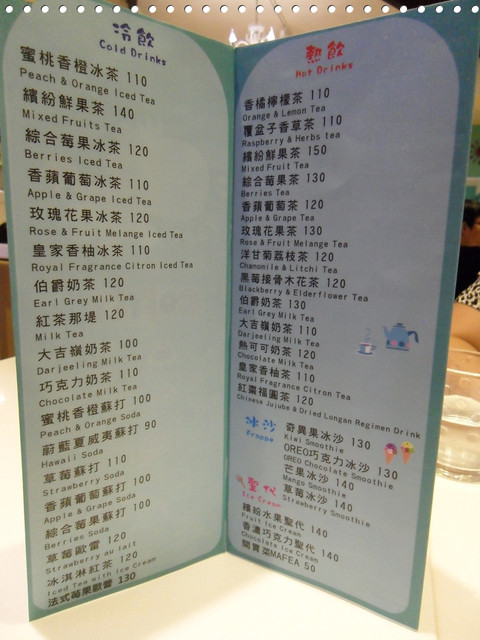 冷飲
Cold Drinks
蜜桃香橙冰茶 110
Peach & Orange Iced Tea
繽紛鮮果茶 140
Mixed Fruits Tea
綜合莓果冰茶 120
Berries Iced Tea
香蘋葡萄冰茶 110
Apple & Grape Iced Tea
玫瑰花果冰茶 120
Rose & Fruit Melange Iced Tea
皇家香柚冰茶 110
Royal Fragrance Citron Iced Tea
伯爵奶茶 120
Earl Grey Milk Tea
紅茶那堤 120
Milk Tea
大吉嶺奶茶 100
Darjeeling Milk Tea
巧克力奶茶 110
Chocolate Milk Tea
蜜桃香橙蘇打 100
Peach & Orange Soda
蔚藍夏威夷蘇打 90
Hawaii Soda
草莓蘇打 110
Strawberry Soda
香蘋葡萄蘇打 100
Apple & Grape Soda
綜合莓果蘇打 100
Berries Soda
草莓歐雷 120
Strawberry au lait
冰淇淋紅茶 120
Iced Tea with Ice Cream
法式莓果歐蕾 130
熱飲
Hot Drinks
香橘檸檬茶 110
Orange & Lemon Tea
覆盆子香草茶 110
Raspberry & Herbs tea
繽紛鮮果茶 150
Mixed Fruit Tea
綜合莓果茶 130
Berries Tea
香蘋葡萄茶 120
Apple & Grape Tea
玫瑰花果茶 130
Rose & Fruit Melange Tea
洋甘菊荔枝茶 120
Chanomile & Litchi Tea
黑莓接骨木花茶 120
Blackberry & Elderflower Tea
伯爵奶茶 130
Earl Grey Milk Tea
大吉嶺奶茶 110
Darjeeling Milk Tea
熱可可奶茶 120
Chocolate Milk Tea
皇家香柚茶 110
Royal Fragrance Citron Tea
紅棗福圓茶 120
Chinese Jujube & Dried Longan Regimen Drink
冰沙
Frappe
奇異果冰沙 130
Kiwi Smoothie
OREO巧克力冰沙 130
OREO Chocolate Smoothie
芒果冰沙 140
Mango Smoothie
草莓冰沙 140
Strawberry Smoothie
聖代
Ice Cream
繽紛水果聖代 140
Fruit Ice Cream
香濃巧克力聖代 140
Chocolate Ice Cream
開賓菜MAFEA 50